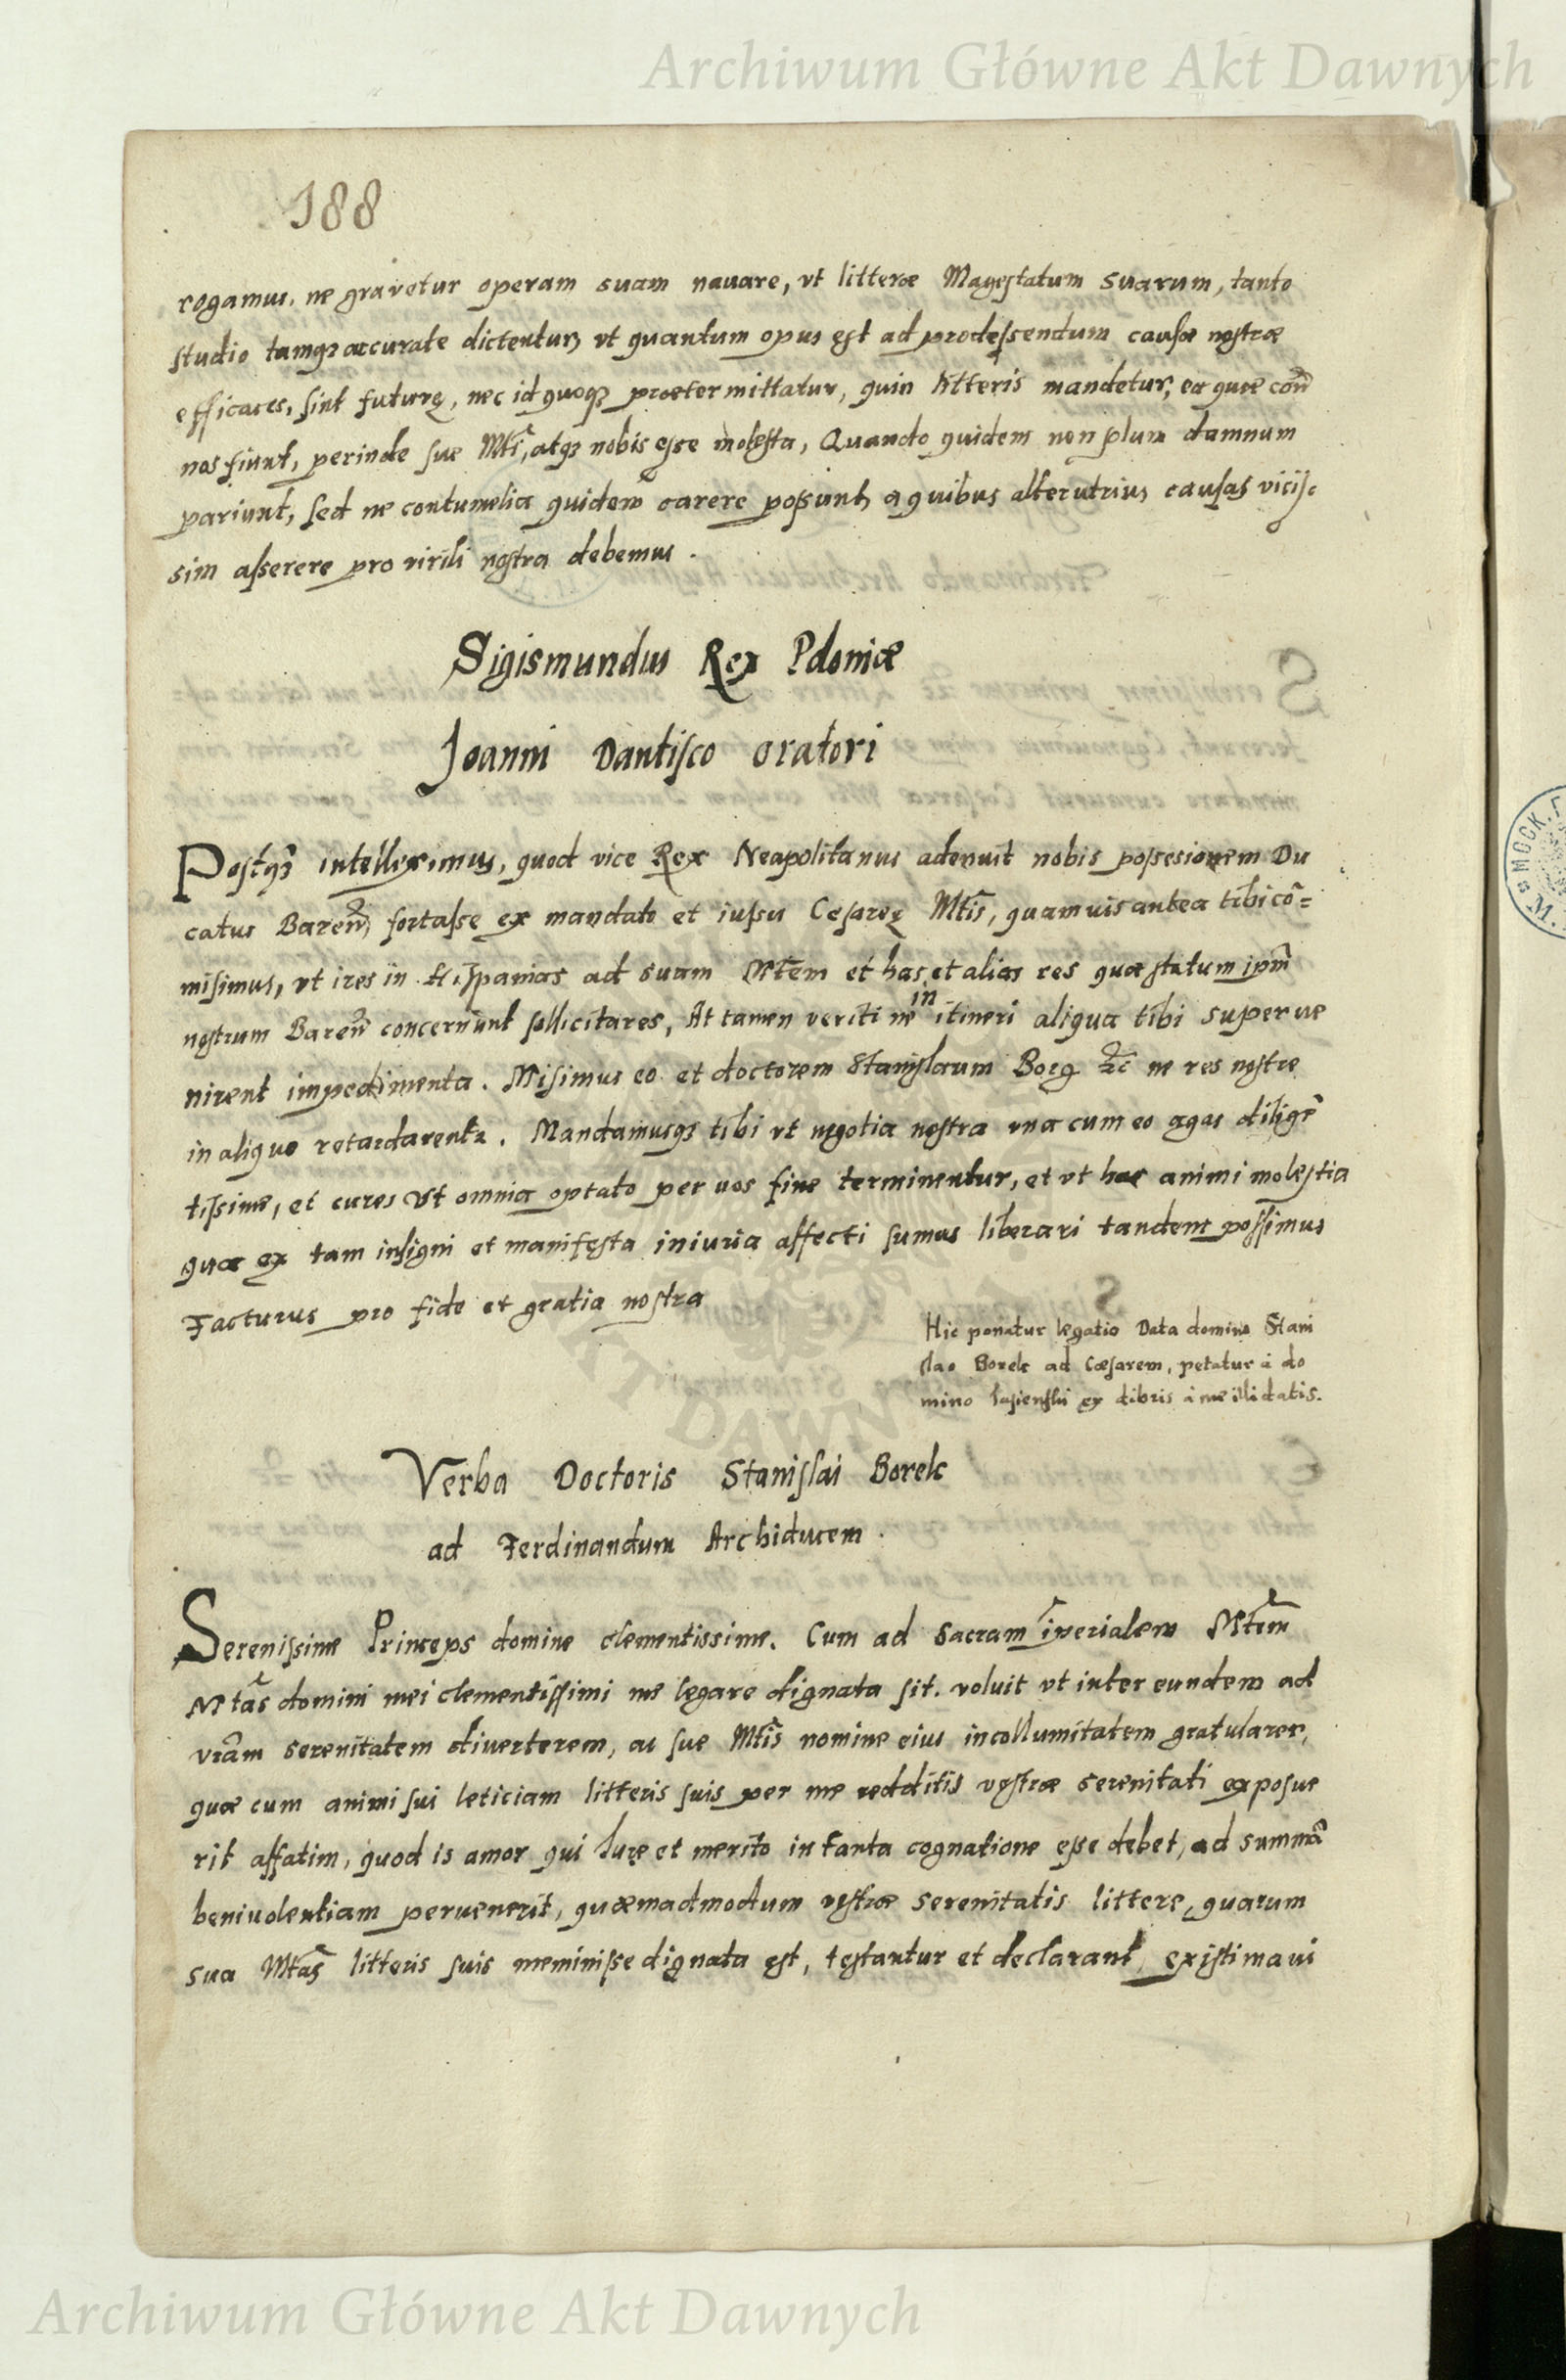 Archiwum Główne Akt Dawnych
188
rogamus, ne gravetur operam suam nauare, vt litteræ Magestatum suarum, tanto
studio tamqꝫ accurate dictentur, vt quantum opus est ad prodessendum causæ nostræ
efficaces, sint futurę, nec id quoqꝫ prætermittatur, quin litteris mandetur, ea quæ con̄
nos fiunt, perinde sue Mti, atqꝫ nobis esse molesta, Quando quidem non plura damnum
pariunt, sed ne contumelia quidem carere possunt, a quibus alterutrius causas vicis-
sim asserere pro virili nostra debemus.
Sigismundus Rex Poloniæ
Joanni Dantisco oratori
Postqꝫ intelleximus, quod vice Rex Neapolitanus ademit nobis possesionem Du
catus Baren̄, fortasse ex mandato et iussu Cesareę Mtis, quamuis antea tibi cō=
misimus, vt ires in Hispanias ad suam Mtem et has, et alias res quæ statum ipm̄
nostrum Baren̄ concernunt sollicitares, At tamen veriti ne in itineri aliqua tibi superue
nirent impedimenta. Misimus eo et doctorem Stanislaum Borg ꝛc̄ ne res nostre
in aliquo retardarentur. Mandamusqꝫ tibi vt negotia nostra vna cum eo agas diligē
tissime, et cures vt omnia optato per vos fine terminentur, et vt hac animi molestia
quæ ex tam insigni et manifesta iniuria affecti sumus liberari tandem possimus
Facturus pro fide et gratia nostra
Hic ponatur legatio Data domino Stani
slao Borek ad Cæsarem, petatur à do
mino Lasienskii ex libris à me illi datis.
Verba Doctoris Stanislai Borek
ad Ferdinandum Archiducem.
Serenissime Princeps domine clementissime. Cum ad sacram īperialem Mtem
Mtas domini mei clementissimi me legare dignata sit. voluit vt inter eundem ad
vrām serenitatem diuerterem, ac sue Mtis nomine eius incollumitatem gratularer,
quæ cum animi sui leticiam litteris suis per me redditis vestræ serenitati exposue
rit affatim, quod is amor qui Iure et merito in tanta cognatione esse debet, ad summā
beniuolentiam peruenerit, quæmadmodum vestræ serenitatis littere, quarum
sua Mtas litteris suis meminisse dignata est, testantur et declarant, existimaui
Archiwum Główne Akt Dawnych